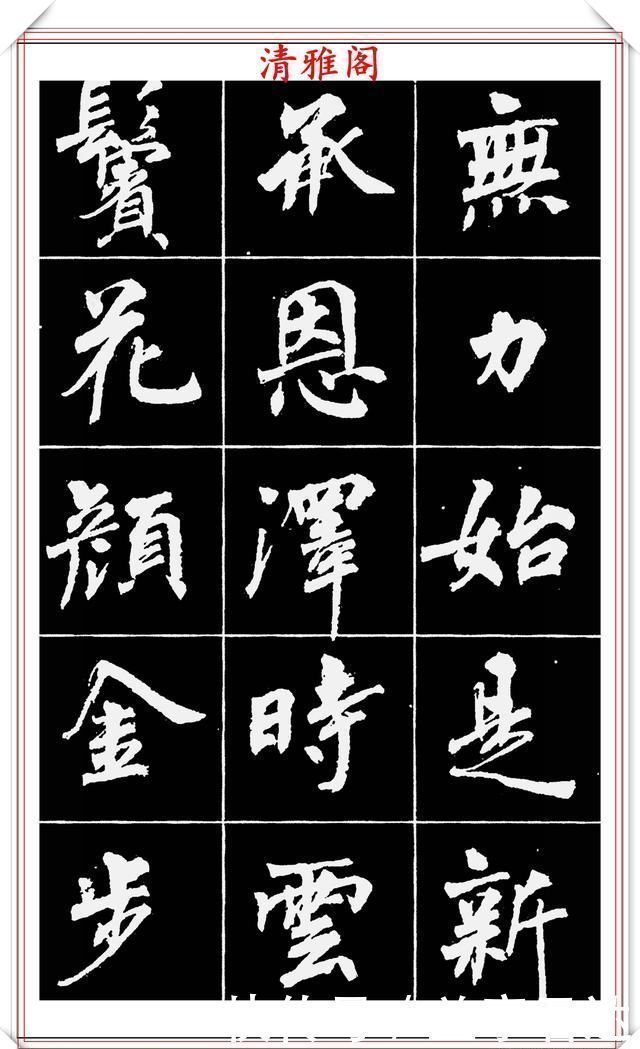 清雅阁
無力始是新
承恩澤時雲
鬢花顏金步